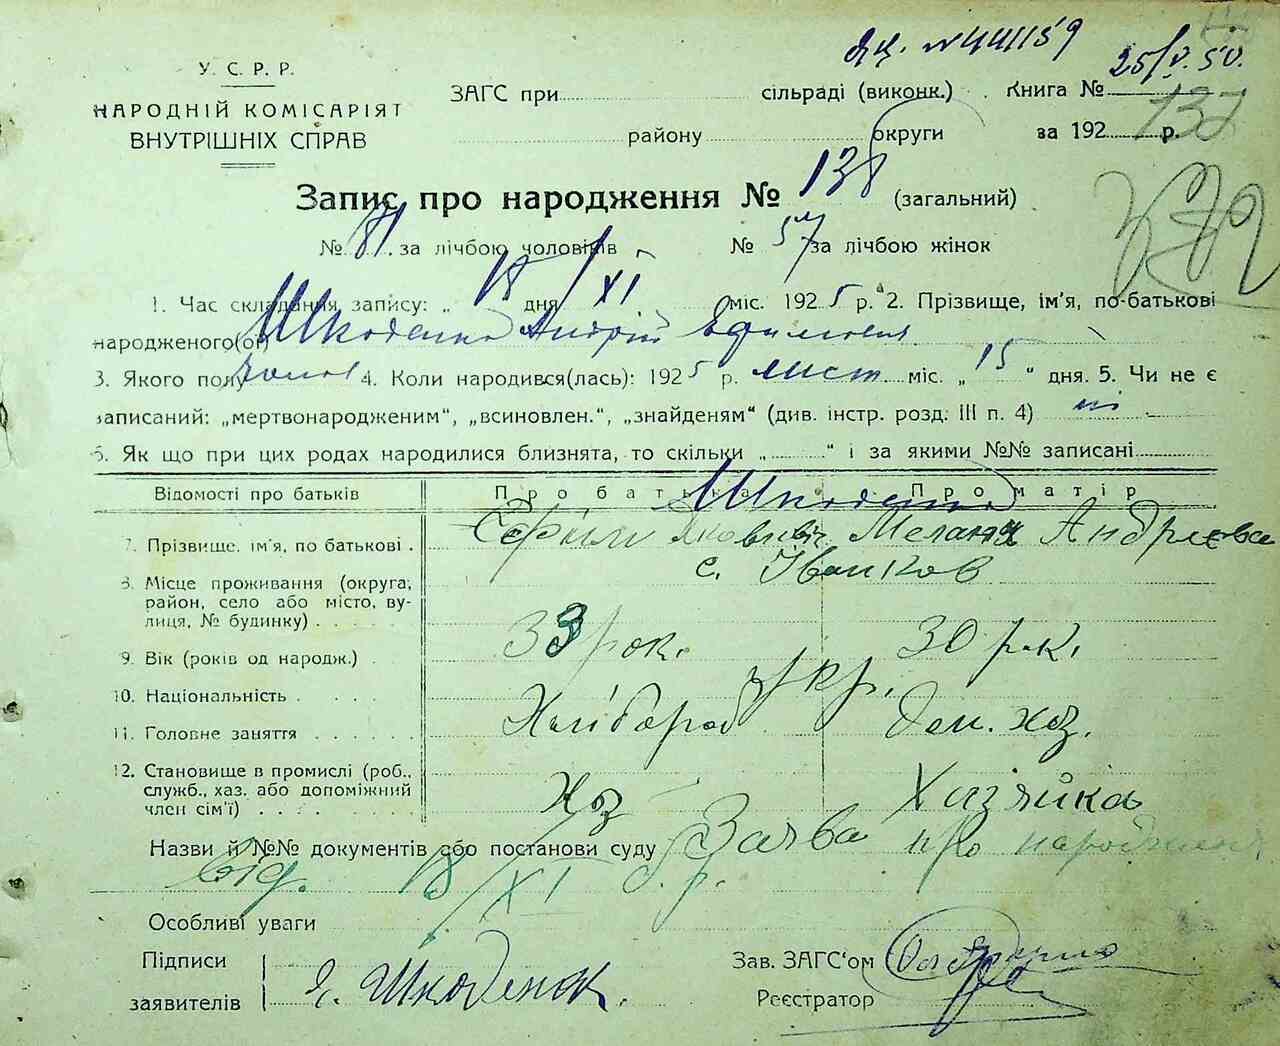 У. С. Р. Р.
НАРОДНІЙ КОМІСАРІЯТ
ВНУТРІШНІХ СПРАВ
25/V. 50.
ЗАГС при сільраді (виконк.) Книга №
району округи за 192 р.
132
Запис про народження № 138 (загальний)
№ 81 за лічбою чоловіків № 57 за лічбою жінок
1. Час складання запису: „ 18 дня XI міс. 1925 р. 2. Прізвище, ім'я, по-батькові
народженого(ої) Шкоденко Андрій
3. Якого полу 4. Коли народився(лась): 1925 р. лист. міс. „ 15 “ дня. 5. Чи не є
записаний: „мертвонародженим“, „всиновлен.“, „знайденям“ (див. інстр. розд. III п. 4) ні
6. Як що при цих родах народилися близнята, то скільки „ “ і за якими №№ записані
Відомості про батьків Про батька Про матір
Шкоденко
7. Прізвище, ім'я, по батькові . Єфим Яковлевіч Меланя Андрієва
с. Іванков
8. Місце проживання (округа,
район, село або місто, ву-
лиця, № будинку) . . . .
9. Вік (років од народж.) . 33 рок. 30 рок.
10. Національність . . . . . укр.
11. Головне заняття . . . . . Хлібороб дом. хоз.
12. Становище в промислі (роб.,
служб., хаз. або допоміжний
член сім'ї) . . . . . Хоз Хазяйка
Назви й №№ документів або постанови суду Заява про народженя
від. 18/XI с. р.
Особливі уваги
Підписи
заявителів Є. Шкоденок.
Зав. ЗАГС‘ом
Реєстратор